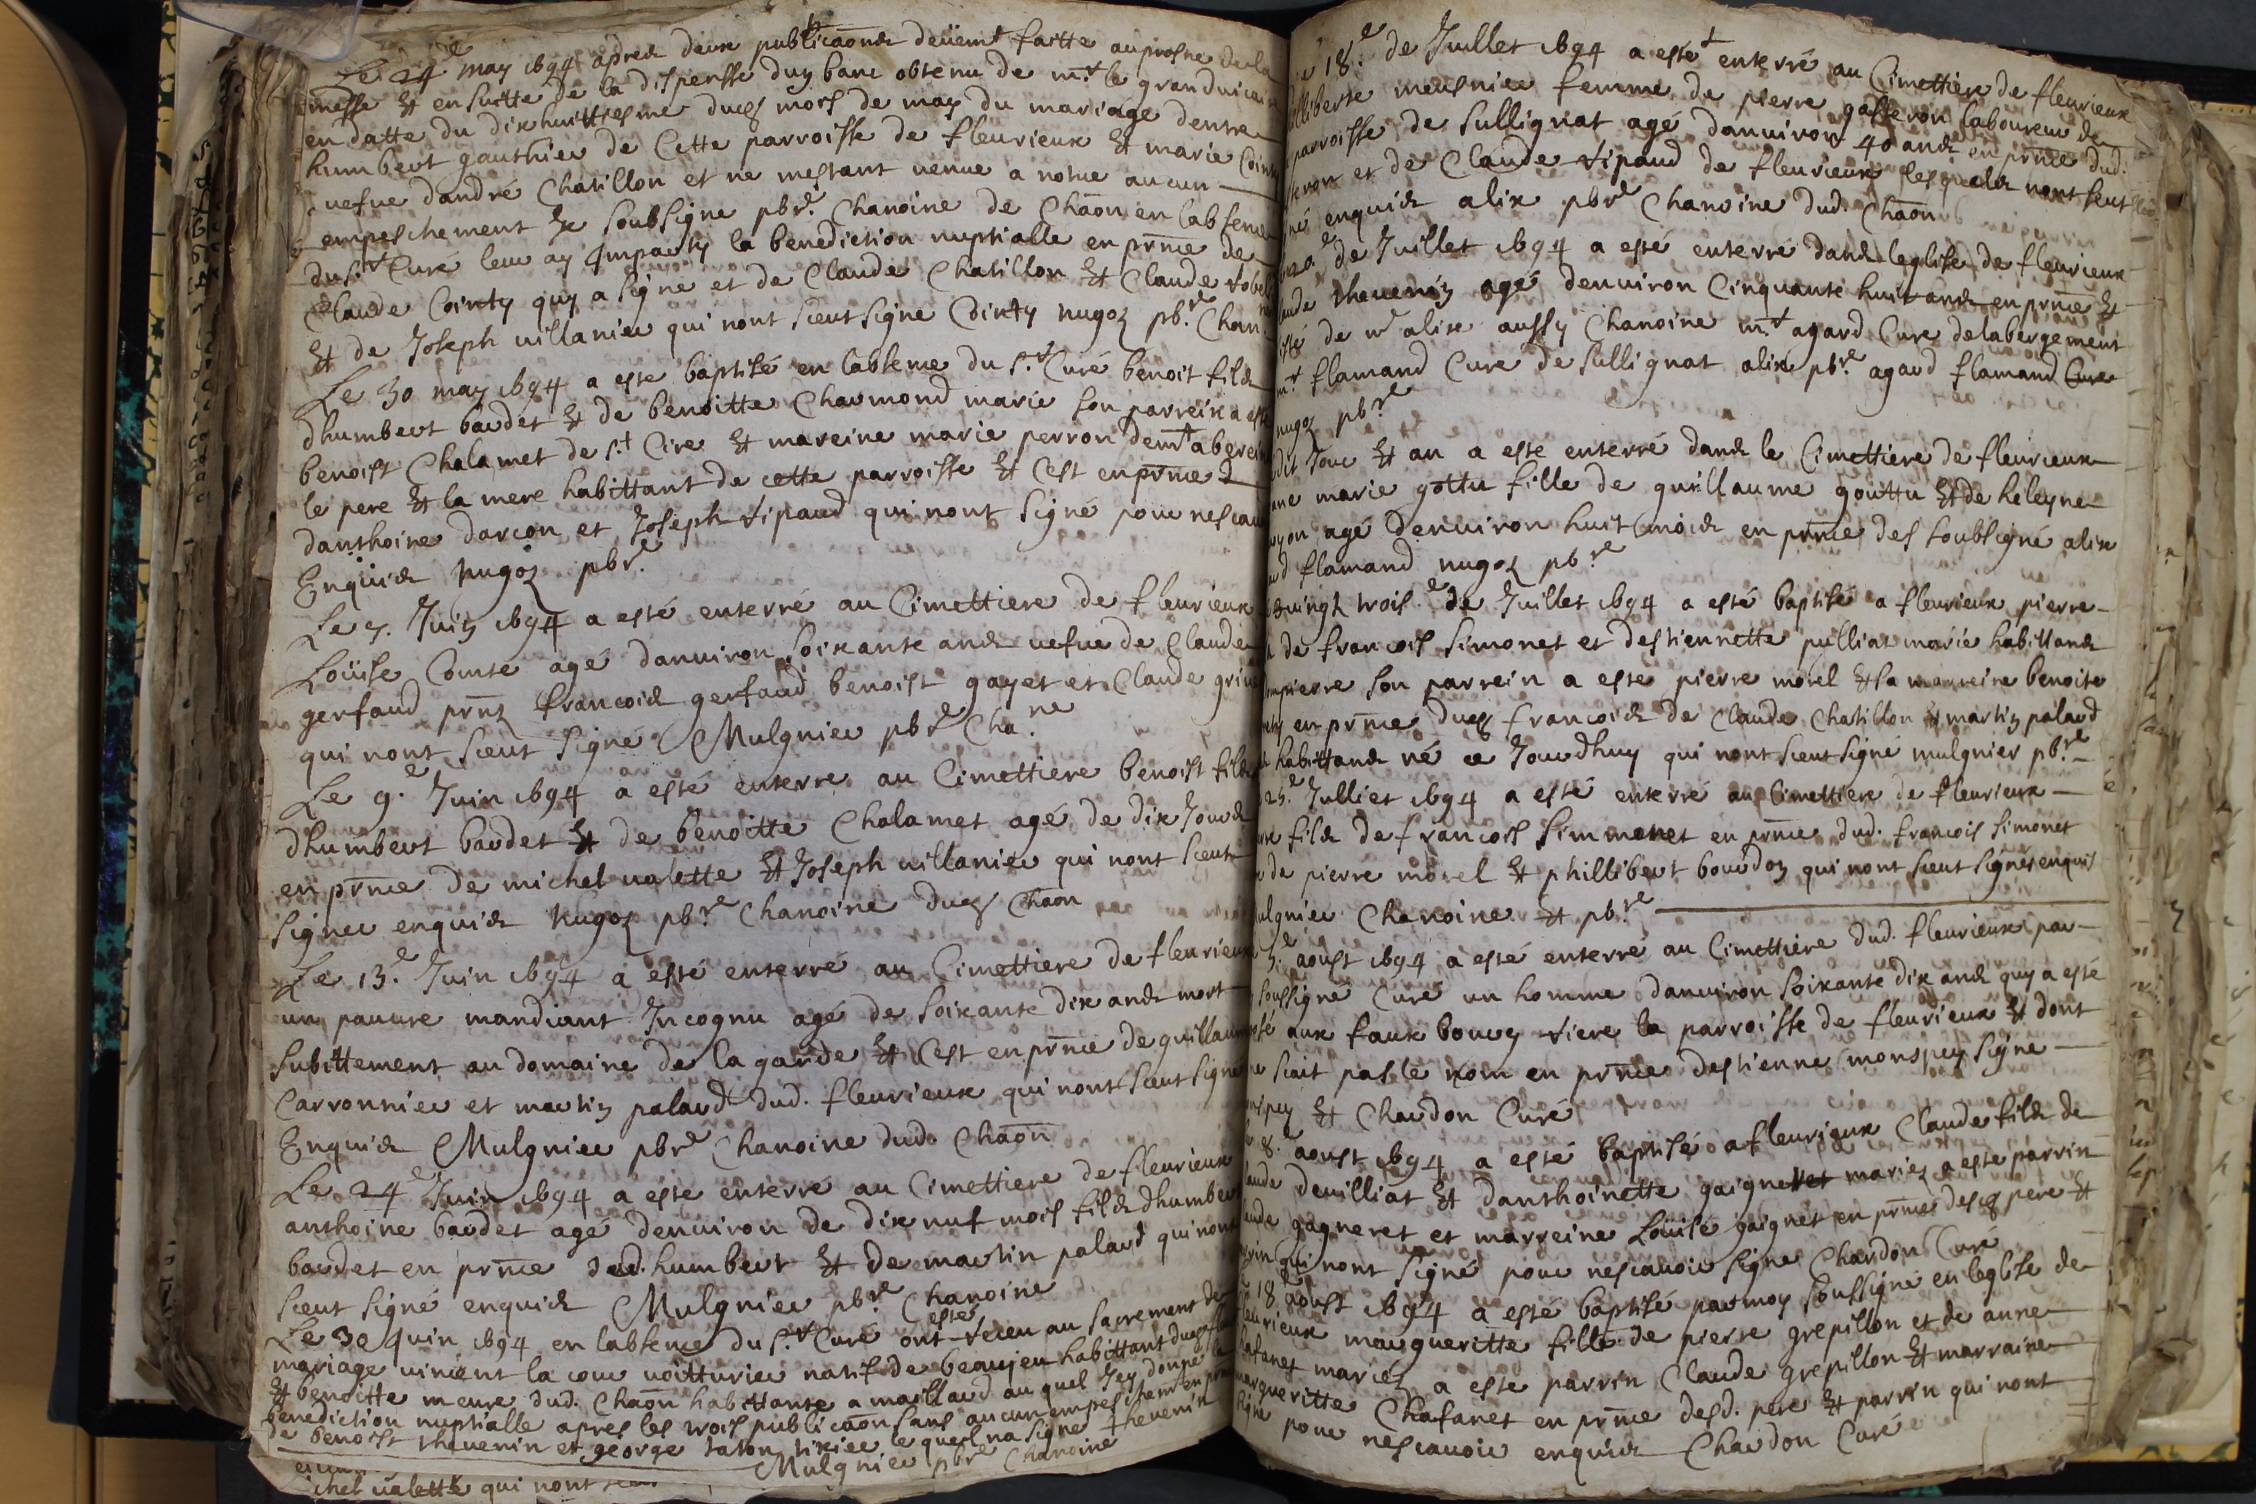 Le 24e may 1694 apres deux publicaõns deüemt faitte au prosne de la
messe & en suitte de la dispensse duz banc obtenu de mr le grand vicaire
en datte du dix huittiesme dug mois de may du mariage dentre
humbert gauthier de Cette parroisse de fleurieux & marie Cointy
vefve dandré Chatillon et ne mestant venue a notice aucun
empeschement Je soubsigne pbre. Chanoine de Chãon en labsence
du sr Curé leur ay Jmparty la benediction nuptialle en prñce de
Claude Cointy quy a signe et de Claude Chatillon & Claude robe
& de Joseph villanier qui nont sceut signe Cointy nugoz pbre Chan
Le 30 may 1694 a este baptisé en labsence du sr Curé benoit fils
dhumbert baudet & de benoitte Charmond marie son parreix a este
benoist Chalamet de st Cire & mareine marie perron demt a berein
le pere & la mere habittant de cette parroisse & Cest en prñce d
danthoine darcon et Joseph ripaud qui nont signé pour nescav
Enquis nugoz pbre.
Le 5. Juin 1694 a esté enterré au Cimettiere de fleurieux
Loüise Comte agé danviron soixante ans vefve de Claude
gerfaud prñz francois gerfaud benoist gayet et Claude griv
qui nont sceut signé Mulgnier pbre Chane
Le 9.e Juin 1694 a esté enterre au Cimettiere benoist fils
dhumbert baudet & de benoitte Chalamet agé de dix Jours
en prñce de michel valette & Joseph villanier qui nont sceut
signer enquis nugoz pbre Chanoine dug Chãon
Le 13.e Juin 1694 a esté enterré au Cimettiere de fleurieux
un pauvre mandiant Jncognu agé de soixante dix ans mort
subittement au domaine de la garde & Cest en prñce de guillaum
Carronnier et martin palard dud. fleurieux qui nont sceut signe
Enquis Mulgnier pbre Chanoine dud. Chãon
Le 24e Juin 1694 a este enterré au Cimettiere de fleurieux
anthoine baudet age denviron de dix nuf mois fils dhumber
baudet en prñce dud. humbert & de martin palard qui nont
sceut signé enquis Mulgnier pbre Chanoine
Le 30 Juin 1694 en labsence du sr Curé ont esté receu au sacrement de
mariage vincent la cour voitturier natif de beaujeu habittant dug
& benoitte meure dud. Chãon habittante a maillard au quel Jey donne la
benediction nuptialle apres les trois publicaõn sans aucun empeschemt en prñ
de benoist thevenin et george taton tixier le quel na signe thevenin
Mulgnier pbre Chanoine
chel valette qui nont sceut
18.e de Juillet 1694 a esté enterré au Cimettiere de fleurieux
lliberte meusnier femme de pierre galleron laboureur de
parroisse de sullignat agé danviron 40 ans en prñce dud.
leron et de Claude ripaud de fleurieux lesquels nont sceut
né enquis alix pbre Chanoine dud. Chãon
20 de Juillet 1694 a esté enterré dans leglise de fleurieux
laude thevenin agé denviron Cinquante huit ans en prñce &
isté de mr alix aussy Chanoine mr agard Cure de labergement
mr flamand Cure de sullignat alix pbre agard flamand Cure
nugoz pbre
dit Jour & an a este enterré dans le Cimettiere de fleurieux
ane marie gottu fille de guillaume gouttu & de heleyne
yon agé denviron huit mois en prñce des soubsigné alix
rd flamand nugoz pbre
vingt trois.e de Juillet 1694 a esté baptisé a fleurieux pierre
de francois simonet et destiennette pulliat marie habittans
mpierre son parrein a este pierre morel & sa marreine benoite
en prñce dug francois de Claude Chatillon & martin palard
habittans né ce Jourdhuy qui nont sceut signé mulgnier pbre
25.e Julliet 1694 a esté enterré au Cimettiere de fleurieux
rre fils de francois simmonet en prñce dud. francois simonet
de pierre morel & phillibert bourdon qui nont sceut signer enquis
ulgnier Chanoine & pbre
5.e aoust 1694 a esté enterré au Cimettiere dud. fleurieux par
soussigné Curé un homme danviron soixante dix ans quy a esté
sé aux faux bourg riere la parroisse de fleurieux & dont
ne sciait pas le nom en prñce destienne monspey signe
onspey & Chardon Curé
8.e aoust 1694 a esté baptisé a fleurieux Claude fils de
laude devilliat & danthoinette gaigneret mariez a este parrin
aude gagneret et marreine Loüise gaignet en prñce desg pere &
rrin qui nont signé pour nescavoir signe Chardon Cure
18 aoust 1694 a esté baptisé par moy soussigné en leglise de
leurieux margueritte fille de pierre grepillon et de anne
hafanet mariéz a este parrin Claude grepillon & marraine
margueritte Chafanet en prñce desd. pere & parrin qui nont
signe pour nescavoir enquis Chardon Curé